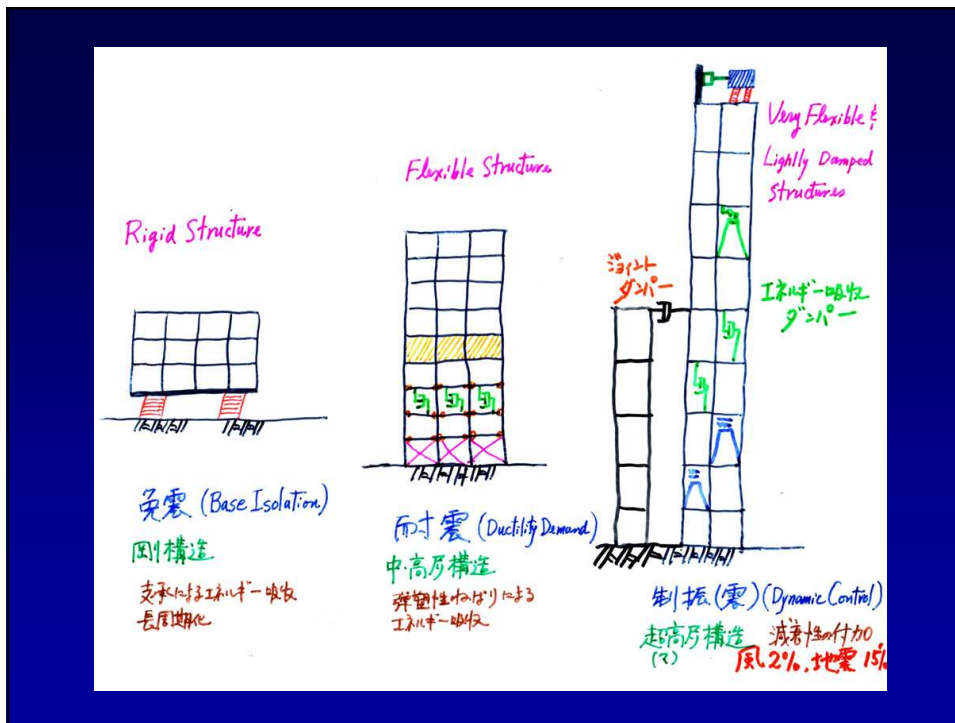 Rigid Structure
免震 (Base Isolation)
剛構造
支承によるエネルギー吸収
長周期化
Flexible Structure
耐震 (Ductility Demand)
中・高層構造
弾塑性ねばりによる
エネルギー吸収
Very Flexible &
Lightly Damped
Structures
ジョイント
ダンパー
エネルギー吸収
ダンパー
制振(震)(Dynamic Control)
超高層構造 減衰性の付加
風2%、地震15%